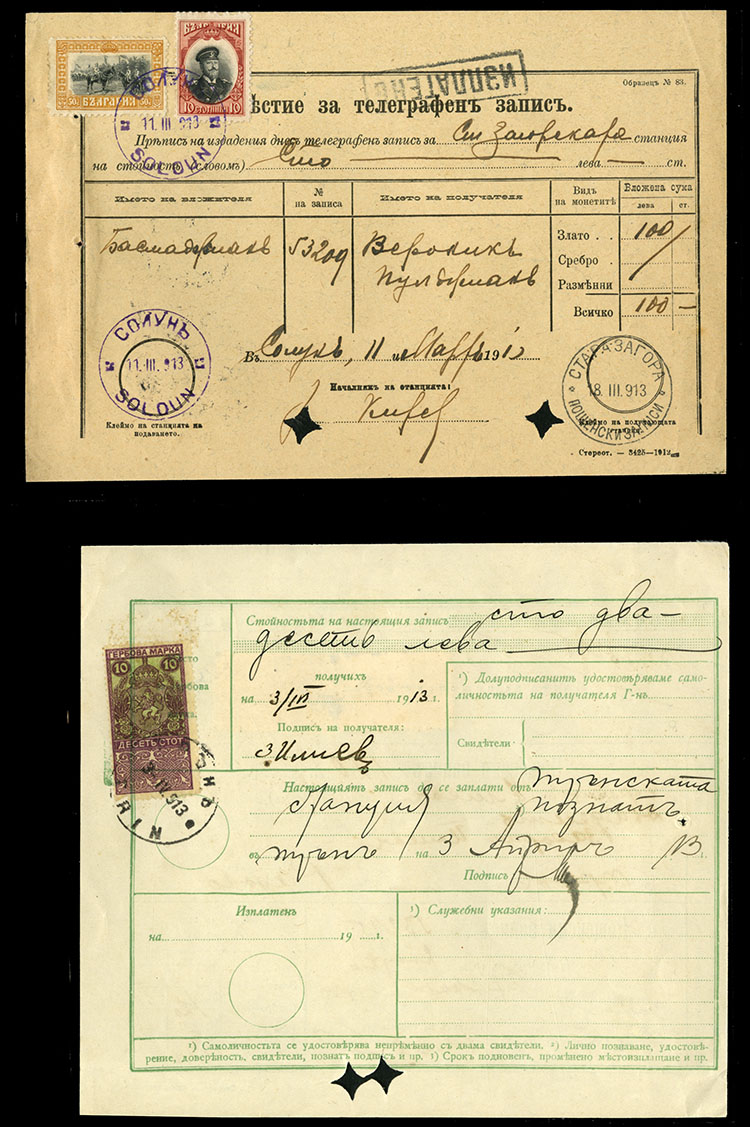 БЪЛГАРИЯ
БЪЛГАРИЯ
50. 50.
10 СТОТИНКИ 10
ИЗПЛАТЕНЪ
Образецъ № 83.
ѣстие за телеграфенъ записъ.
СОЛУНЪ
11.III.913
SOLOUN
Прѣписъ на издадения днесъ телеграфенъ записъ за Ст. Загорскара станция
на стойность (словомъ) Сто лева — ст.
Името на вложителя
№
на записа
Името на получателя
Видъ
на монетитѣ
Вложена сума
лева ст.
Басмаджиянъ 53209 Вероникъ
Пулджиянъ
Злато . . 100
Сребро .
Размѣнни
Всичко 100 —
Въ Солунъ, 11 и Мартъ 1913
Началникъ на станцията:
СОЛУНЪ
11.III.913
SOLOUN
СТАРА ЗАГОРА
18.III.913
ПОЩЕНСКИ ЗАПИСИ
Клеймо на станцията на
подаването.
Клеймо на получающата
станция.
Стереот. — 3425—1912
Стойностьта на настоящия записъ сто два-
десеть лева
ГЕРБОВА МАРКА
10 10
ДЕСЕТЬ СТОТ
получихъ
на 3/IV 1913 г.
Подпись на получателя:
З. Илиевъ
¹) Долуподписанитѣ удостовѣряваме само-
личностьта на получателя Г-нъ
Свидѣтели
Настоящиятъ записъ да се заплати отъ Трънската
познатъ.
въ Трънъ на 3 Априлъ 13 г.
Подпись
3.IV.913
Изплатенъ
на 19 г.
³) Служебни указания:
¹) Самоличностьта се удостовѣрява непрѣменно съ двама свидѣтели. ²) Лично познаване, удостовѣ-
рение, довѣреность, свидѣтели, познатъ подписъ и пр. ³) Срокъ подновенъ, промѣнено мѣстоизплащане и пр.